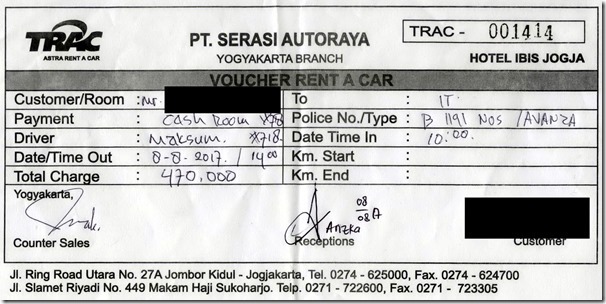 TRAC
ASTRA RENT A CAR
PT. SERASI AUTORAYA
YOGYAKARTA BRANCH
TRAC - 001414
HOTEL IBIS JOGJA
VOUCHER RENT A CAR
Customer/Room : Mr. To : IT.
Payment : Cash Room Police No./Type : B 1191 NOS / AVANZA
Driver : Maksum. Date Time In : 10:00.
Date/Time Out : 8-8-2017. / 1400 Km. Start :
Total Charge : 470,000 Km. End :
Yogyakarta,
08/08/17
Anzka
Counter Sales Receptions Customer
Jl. Ring Road Utara No. 27A Jombor Kidul - Jogjakarta, Tel. 0274 - 625000, Fax. 0274 - 624700
Jl. Slamet Riyadi No. 449 Makam Haji Sukoharjo. Telp. 0271 - 722600, Fax. 0271 - 723305